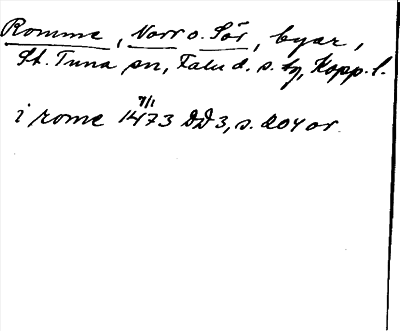 Romme, Norr o. Sör, byar,
St. Tuna sn, Falu d. s. tg, Kopp. l.
7/1
i rome 1473 DD 3, s. 204 or.